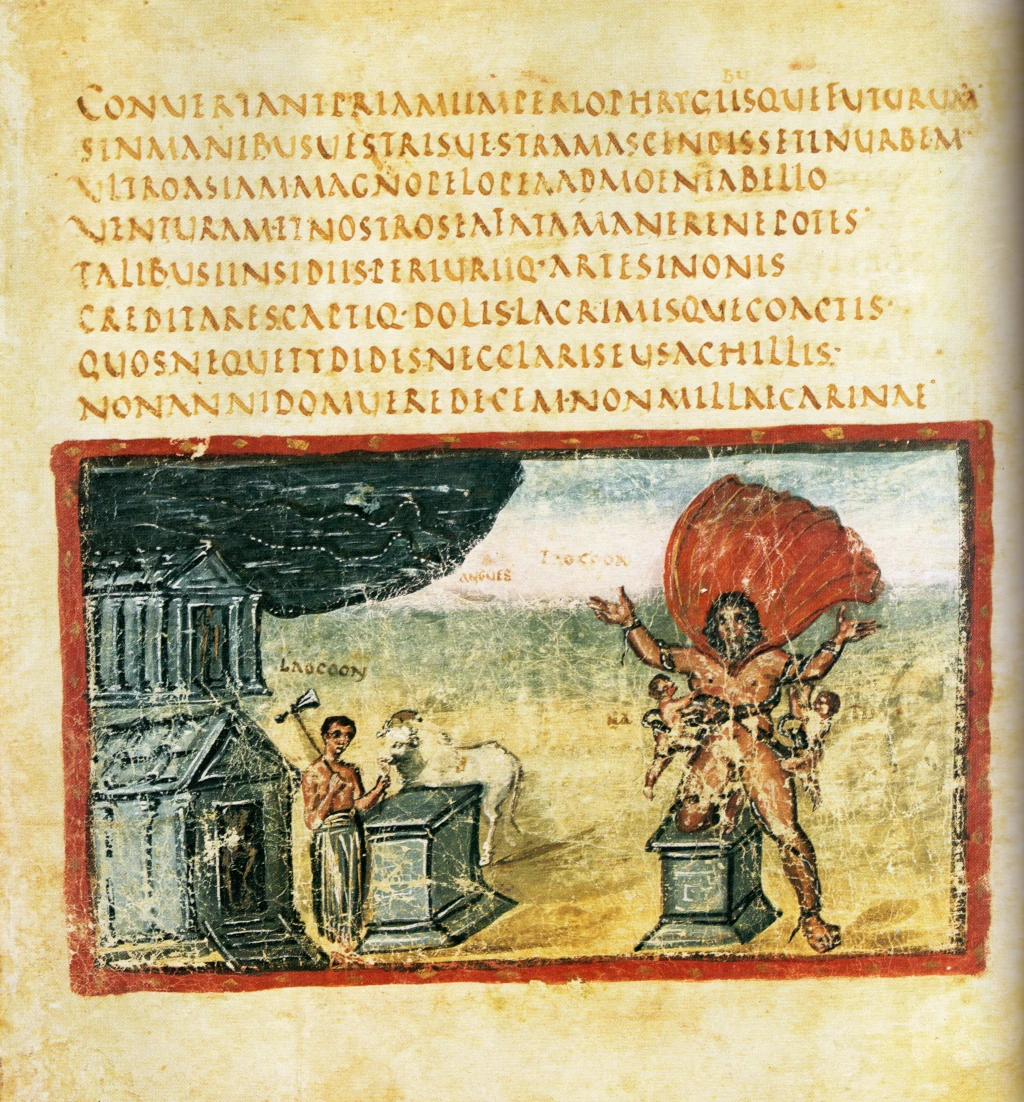 CONUERTANTPRIAMIIMPERIOPHRYGIISQUEFUTURUM
SINMANIBUSUESTRISUESTRAMASCENDISSETINURBEM·
ULTROASIAM·MAGNOPELOPEAADMOENIABELLO
UENTURAM·ETNOSTROSEAFATAMANERENEPOTES·
TALIBUSIINSIDIIS·PERIURIIQ·ARTESINONIS
CREDITARES·CAPTIQ·DOLIS·LACRIMISQUECOACTIS·
QUOSNEQUETYDIDES·NECCLARISEUSACHILLIS·
NONANNIDOMUEREDECEM·NONMILLAECARINAE·
LAOCOON
ANGUES
LAOCOON
NA